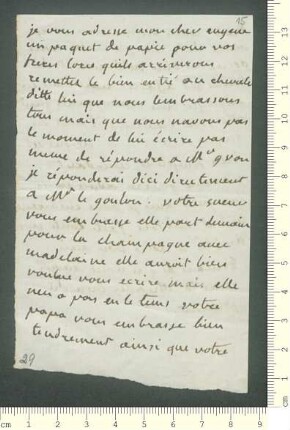 15
je vous adresse mon cher eugene
un paquet de papie pour vos
freres lores quils arriverons
remettes le bien entié au chevalie
ditte lui que nous lembrassons
tous mais que nous navons pas
le moment de lui écrire pas
meme de répondre a Mr
je réponderai dici directement
a Mr le goulon. votre sueur
vous embrasse elle part demain
pour la champagne avec
madelaine elle auroit bien
voulue vous ecrire mais elle
nen a pas eu le tems votre
papa vous embrasse bien
tendrement ainsi que votre
29